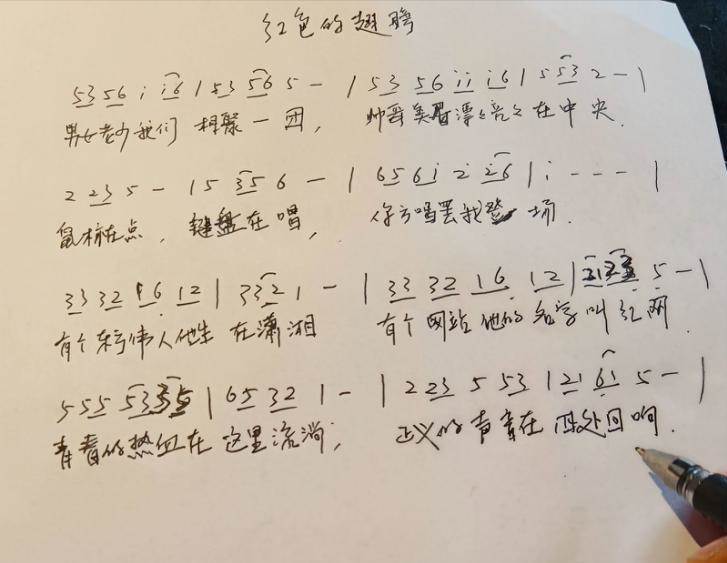 红色的翅膀
5356 i i6 | 53 56 5 - | 53 56 ii i6 | 5 53 2 - |
男女老少我们 相聚一团, 帅哥美眉漂亮在中央.
2 23 5 - | 5 35 6 - | 656i 2 26 | i - - - |
鼠标在点, 键盘在唱, 你方唱罢我登场.
33 32 16 12 | 33 2 1 - | 33 32 16 12 | 5 - |
有个伟人他生在潇湘 有个网站他的名字叫红网
5 55 53 35 | 65 32 1 - | 2 23 5 53 | 21 61 5 - |
青春的热血在这里流淌, 正义的声音在四处回响.